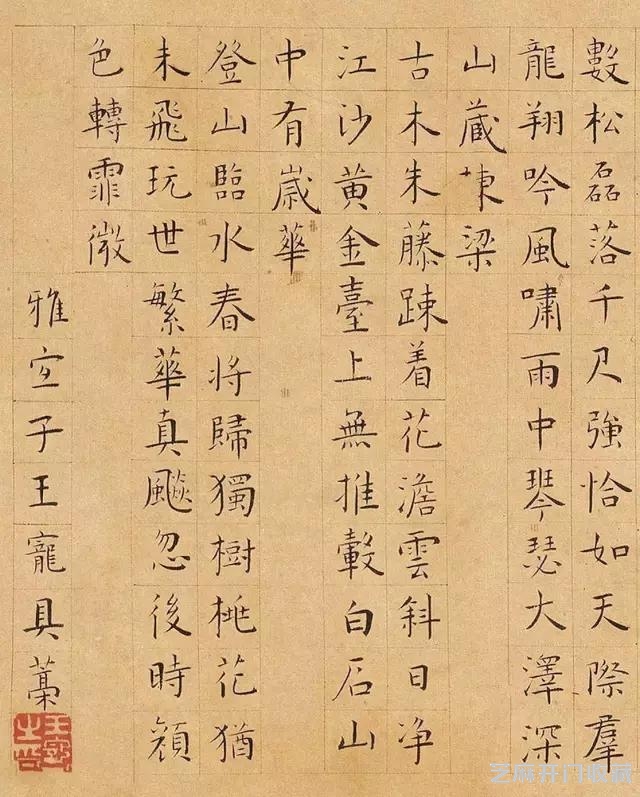 數松磊落千尺強恰如天際羣
龍翔吟風嘯雨中琴瑟大澤深
山蔵棟梁
古木朱藤踈着花澹雲斜日净
江沙黄金臺上無推轂白石山
中有嵗華
登山臨水春將歸獨樹桃花猶
未飛玩世繁華真飈忽後時顔
色轉霏微
雅宜子王寵具藁
王寵之印
芝麻开门收藏